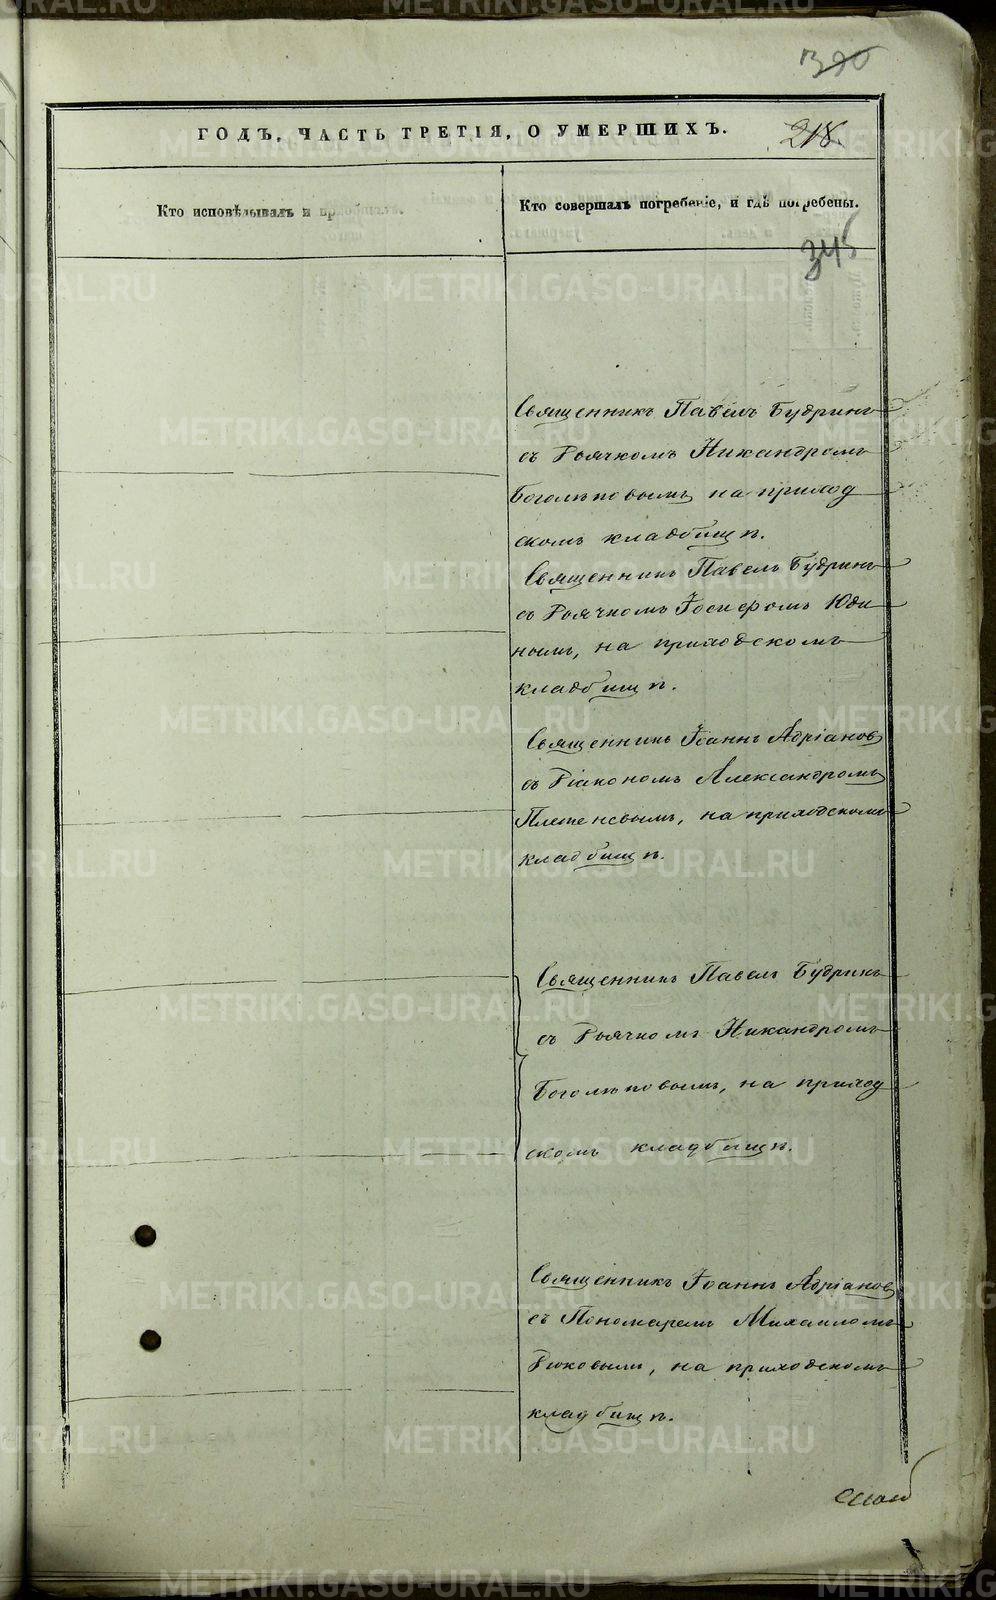 380
ГОДЪ, ЧАСТЬ ТРЕТІЯ, О УМЕРШИХЪ.
218.
Кто исповѣдывалъ и пріобщалъ.
Кто совершалъ погребеніе, и гдѣ погребены.
345
Священникъ Павелъ Будринъ
съ Дьячкомъ Никандромъ
Боголѣповымъ на приход
скомъ кладбищѣ.
Священникъ Павелъ Будринъ
съ Дьячкомъ Іосифомъ Юди
нымъ, на приходскомъ
кладбищѣ.
Священникъ Іоаннъ Адріановъ
съ Діакономъ Александромъ
Плетеневымъ, на приходскомъ
кладбищѣ.
Священникъ Павелъ Будринъ
съ Дьячкомъ Никандромъ
Боголѣповымъ, на приход
скомъ кладбищѣ.
Священникъ Іоаннъ Адріановъ
съ Пономаремъ Михаиломъ
на приходскомъ
кладбищѣ.
METRIKI.GASO-URAL.RU